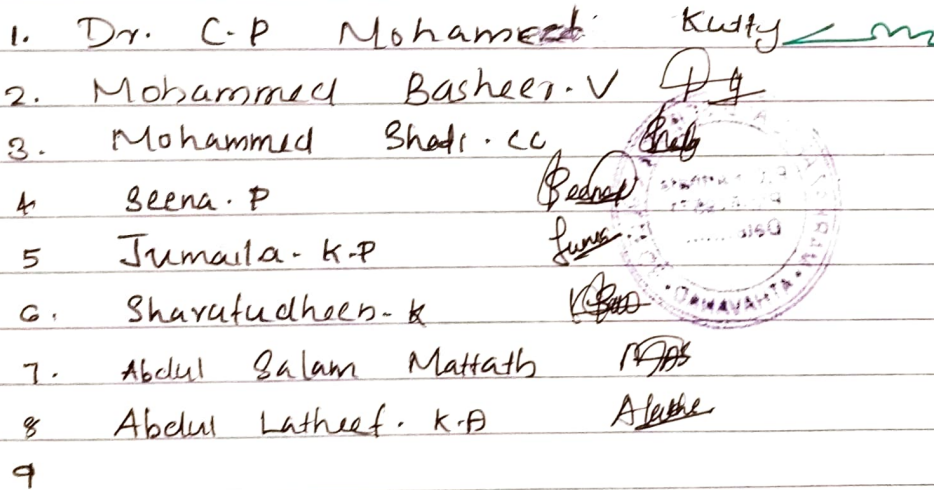 1. Dr. C.P Mohammed Kutty
2. Mohammed Basheer.V
3. Mohammed Shadi.CC
4 Seena.P
5 Jumaila.K.P
6. Sharafudheen.K
7. Abdul Salam Mattath
8 Abdul Latheef.K.A
9